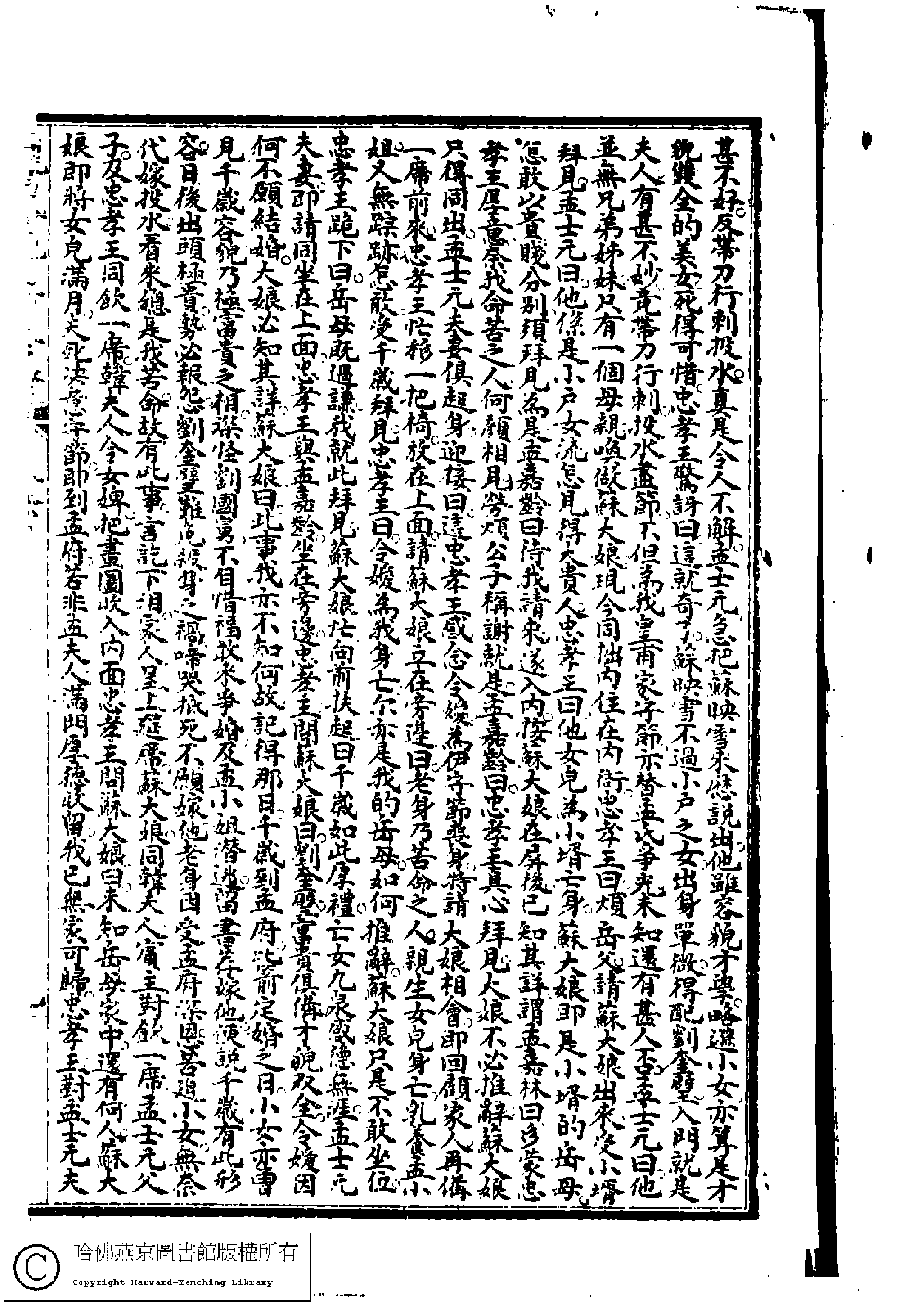 甚不好反帶刀行刺投水真是令人不解孟士元急把蘇映雪來歷說出他雖容貌才學略遜小女亦算是才
貌雙全的美女死得可惜忠孝王驚訝曰這就奇了蘇映雪不過小戶之女出身單微得配劉奎璧入門就是
夫人有甚不妙竟帶刀行刺投水盡節不但為我皇甫家守節亦替孟氏爭光未知還有甚人否孟士元曰他
並無兄弟姊妹只有一個母親喚做蘇大娘現今同拙內住在內衙忠孝王曰煩岳父請蘇大娘出來受小壻
拜見孟士元曰他係是小戶女流怎見得大貴人忠孝王曰他女兒為小壻亡身蘇大娘即是小壻的岳母
怎敢以貴賤分別須拜見為是孟嘉齡曰待我請來遂入內按蘇大娘在屏後已知其詳謂孟嘉林曰多蒙忠
孝王厚意奈我命苦之人何顏相見勞煩公子稱謝就是孟嘉齡曰忠孝王真心拜見大娘不必推辭蘇大娘
只得同出孟士元夫妻俱起身迎接曰這忠孝王感念令嬡為伊守節喪身特請大娘相會即回顧家人再備
一席前來忠孝王忙移一把椅放在上面請蘇大娘立在旁邊曰老身乃苦命之人親生女兒身亡乳養孟小
姐又無踪跡怎敢受千歲拜見忠孝王曰令嬡為我身亡尔亦是我的岳母如何推辭蘇大娘只是不敢坐位
忠孝王跪下曰岳母既過謙我就此拜見蘇大娘忙向前扶起曰千歲如此厚禮亡女九泉感德無涯孟士元
夫妻即請同坐在上面忠孝王與孟嘉齡坐在旁邊忠孝王問蘇大娘曰劉奎璧富貴俱備才貌双全令嬡因
何不願結婚大娘必知其詳蘇大娘曰此事我亦不知何故記得那日千歲到孟府比箭定婚之日小女亦曾
見千歲容貌乃極富貴之相深怪劉國舅不自惜福故來爭婚及孟小姐潛逃當書荐嫁他便說千歲有此形
容日後出頭極貴勢必報怨劉奎璧難免殺身之禍啼哭抵死不願嫁他老身因受孟府深恩苦迫小女無奈
代嫁投水看來總是我苦命故有此事言訖下泪家人呈上筵席蘇大娘同韓夫人賓主對飲一席孟士元父
子及忠孝王同飲一席韓夫人令女婢把畫圖收入內面忠孝王問蘇大娘曰未知岳母家中還有何人蘇大
娘即將女兒滿月夫死決意守節即到孟府若非孟夫人滿門厚德收留我已無家可歸忠孝王對孟士元夫
哈佛燕京圖書館版權所有
Copyright Harvard-Yenching Library